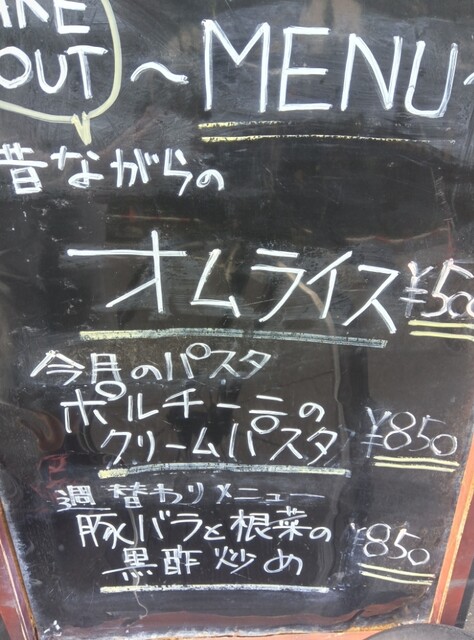 OUT
〜MENU
昔ながらの
オムライス ¥50
今月のパスタ
ポルチーニの
クリームパスタ ¥850
週替わりメニュー
豚バラと根菜の
黒酢炒め ¥850